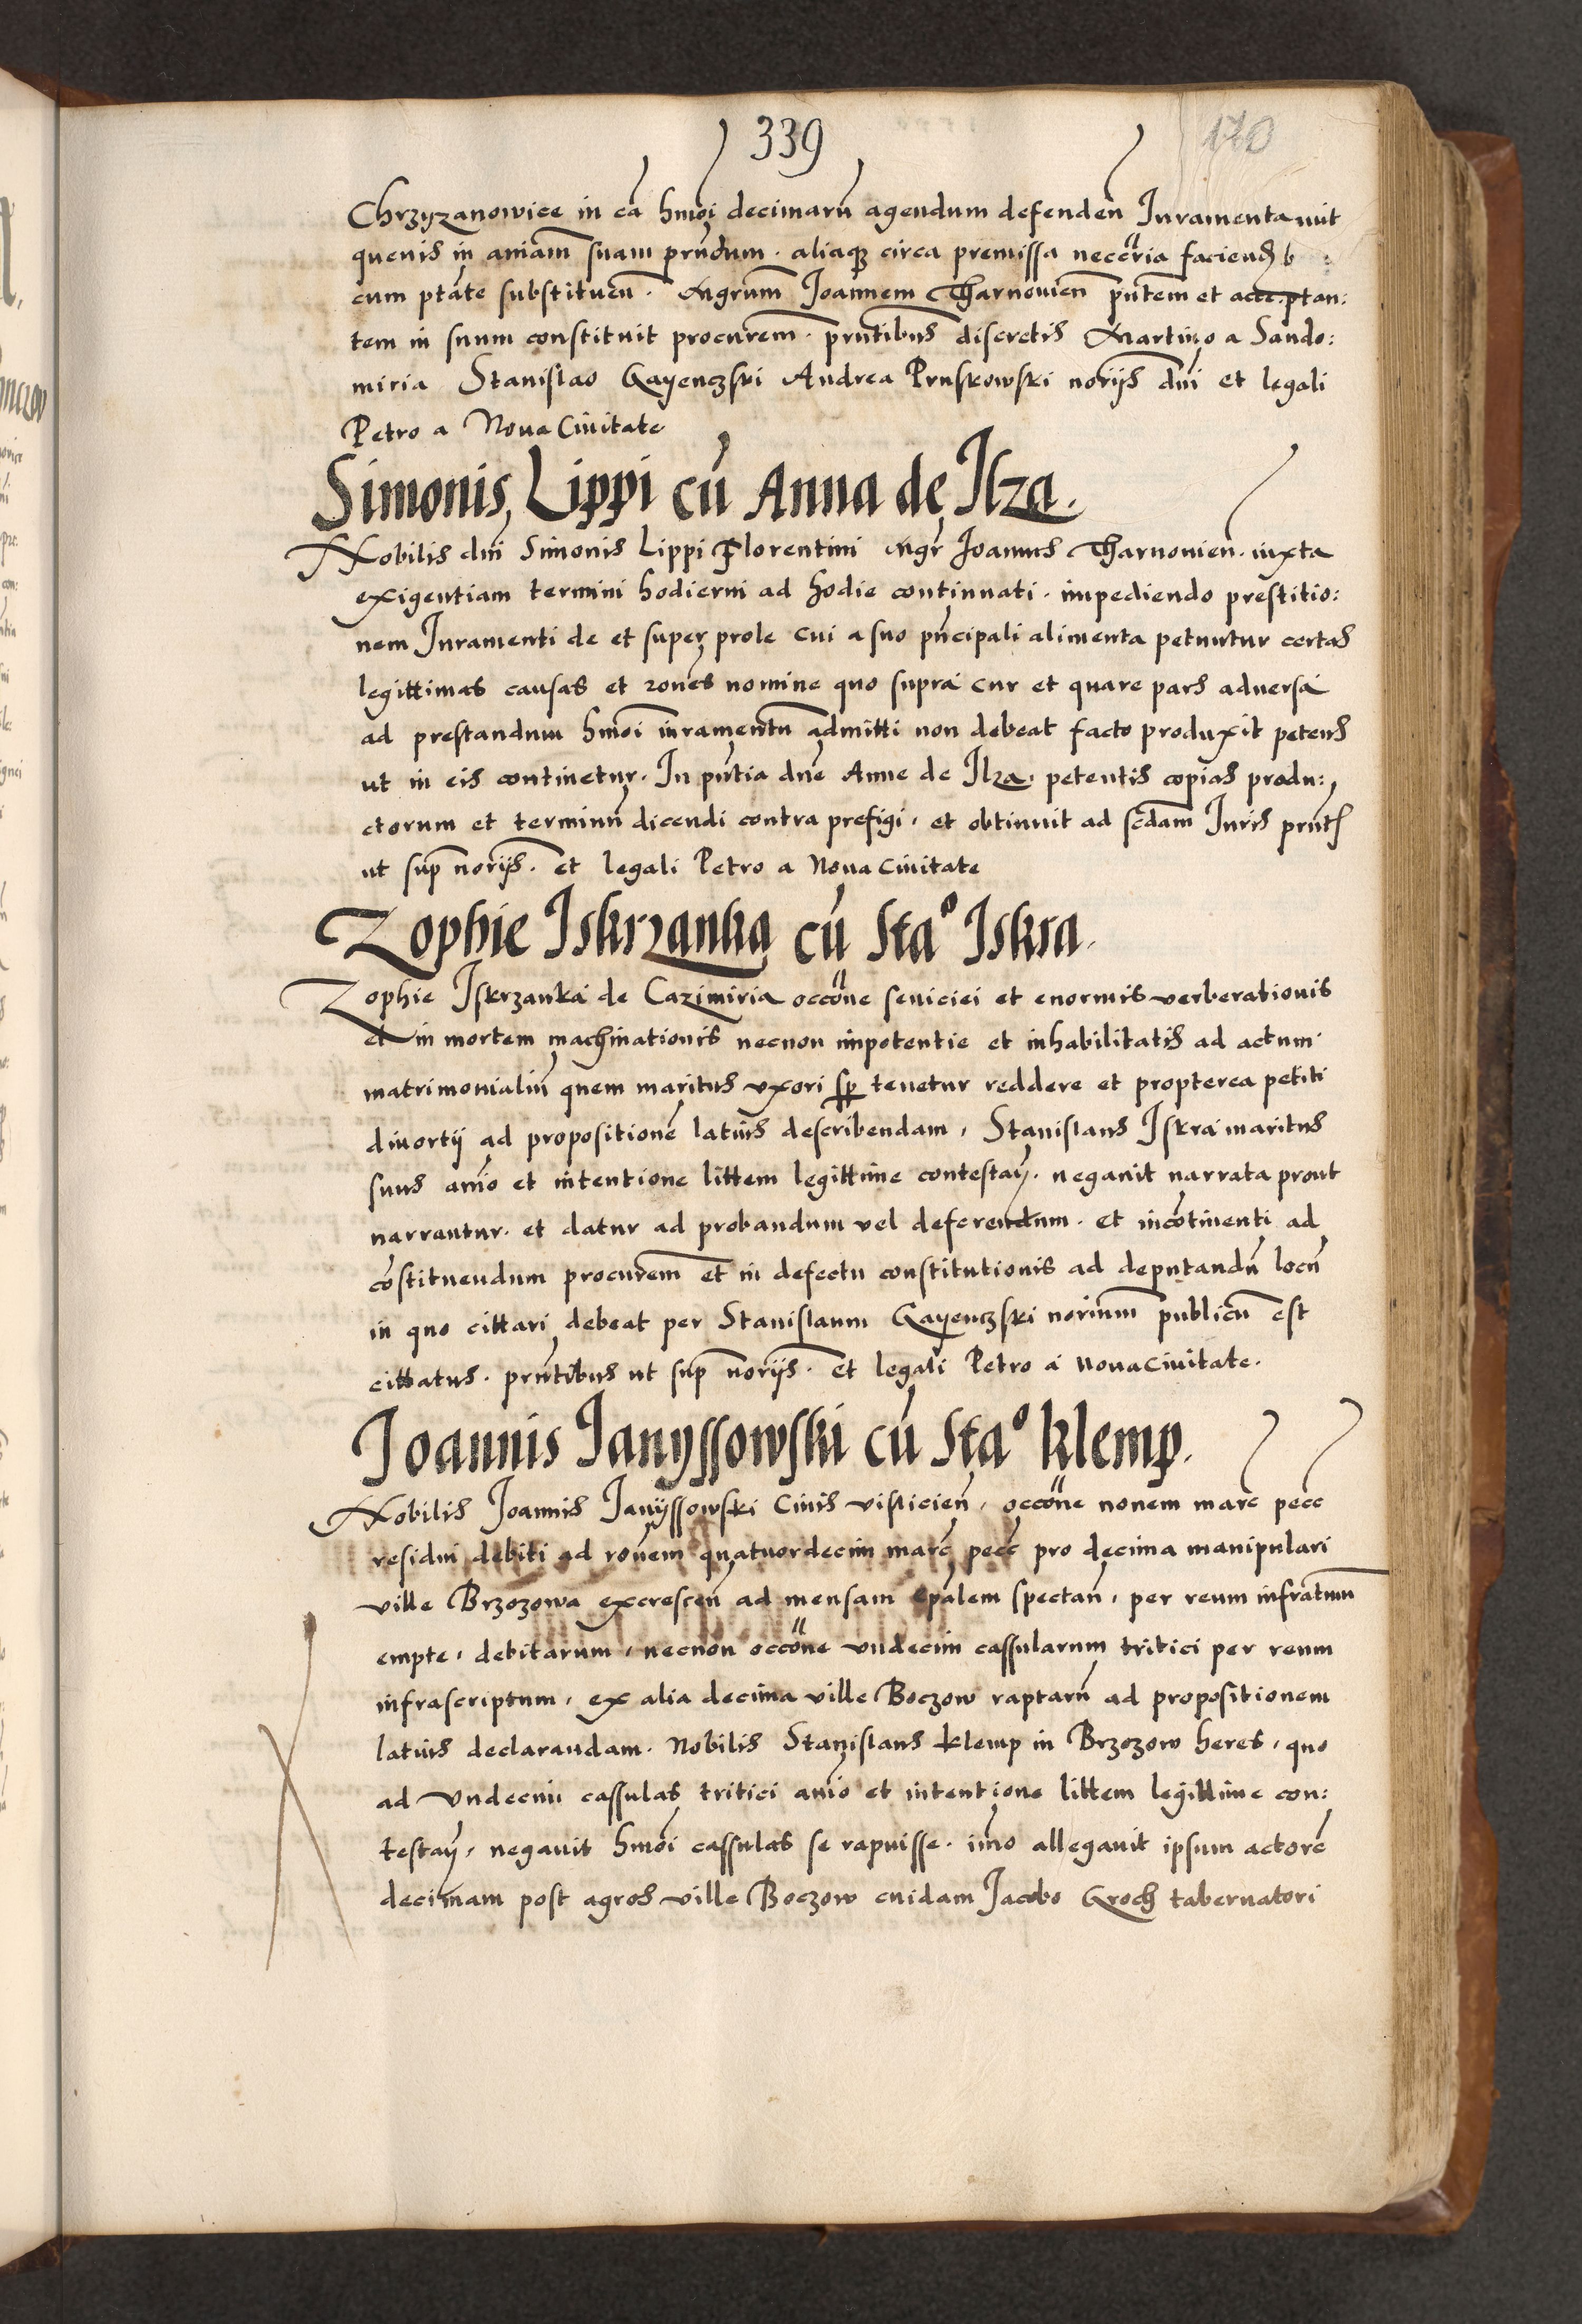 339
170
Chrzyzanowice in cā hmōi decimarū agendum defendeñ Iuramenta uut
quevis in aniam̄ suam prn̄dum · aliaqꝫ circa premissa necc̄ria faciend
cum ptāte substituen̄ · Mgrum̄ Ioannem Tharnovien̄ pn̄tem et acce.ptan:
tem in suum constituit procurem̄ · prn̄tibus discretis Martino a Sando:
miria Stanislao Gayenczski Andrea Pruskowski norijs̄ dn̄i et legali
Petro a Noua Ciuitate
Simonis, Lippi cū Anna de Ilza.
Nobilis dn̄i Simonis Lippi Florentini Mgr̄ Ioannes Tharnouien̄ · iuxta
exigentiam termini hodierni ad hodie continuati · impediendo prestitio:
nem Iuramenti de et super prole cui a suo pn̄cipali alimenta petuntur certas
legittimas causas et rōnes nomine quo supra cur et quare pars aduersa
ad prestandum hmōi iuramentū admitti non debeat facto produxit petens
ut in eis continetur · In pn̄tia dn̄e Anne de Ilza · petentis copias produ:
ctorum et terminū dicendi contra prefigi · et obtinuit ad scdam̄ Iuris prn̄t
ut sup̄ norijs̄ · et legali Petro a Noua Ciuitate
Zophie Iskrzanka cū Sta° Iskra.
Zophie Iskrzanka de Cazimiria occōne seuiciei et enormis verberationis
et in mortem machinationis necnon impotentie et inhabilitatis ad actum
matrimonialiū quem maritus vxori sp̄ tenetur reddere et propterea petiti
diuortij ad propositionē latius describendam · Stanislaus Iskra maritus
suus anīo et intentione littem legittime contestaṇ · negauit narrata prout
narrantur · et datur ad probandum vel deferendum · et incōtinenti ad
cōstituendum procurem̄ et in defectu constitutionis ad deputandū locū
in quo cittari debeat per Stanislaum Gayenczski norium̄ publicū est
cittatus · prn̄tibus ut sup̄ norijs̄ · et legali Petro a Noua Ciuitate ·
Ioannis Ianyssowski cū Sta° klemp.
Nobilis Ioannis Ianyssowski Ciuis vislicien̄ · occōne nonem marc̄ pecc̄
residui debiti ad rōnem quatuordecim marc̄ pecc̄ pro decima manipulari
ville Brzozowa excrescen̄ ad mensam ep̄alem spectan̄ · per reum infratum̄
empte · debitarum · necnon occōne vndecim cassularum tritici per reum
infrascriptum · ex alia decima ville Boczow raptarū ad propositionem
latius declarandam · Nobilis Stanislaus klemp in Brzozow heres · quo
ad vndecim cassulas tritici anīo et intentione littem legittime con:
testaṇ · negauit hmōi cassulas se rapuisse · imo allegauit ipsum actorē
decimam post agros ville Boczow cuidam Iacobo Groch tabernatori